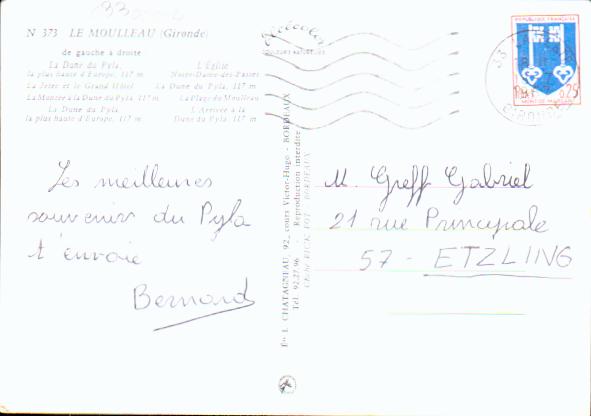 33
N 373 LE MOULLEAU (Gironde)
de gauche à droite
La Dune du Pyla, L'Église
la plus haute d'Europe, 117 m Notre-Dame-des-Passes
La Jetée et le Grand Hôtel La Dune du Pyla, 117 m
La Montée à la Dune du Pyla, 117 m La Plage du Moulleau
La Dune du Pyla L'Arrivée à la
la plus haute d'Europe, 117 m Dune du Pyla, 117 m
Les meilleures
souvenirs du Pyla
t'envoie
Bernard
Éts L. CHATAGNEAU, 92, cours Victor-Hugo - BORDEAUX
Tél. 92.27.96 - Reproduction interdite
RÉPUBLIQUE FRANÇAISE
0,25
MONT-DE-MARSAN
33
GIRONDE
M. Greff Gabriel
21 rue Principale
57 - ETZLING